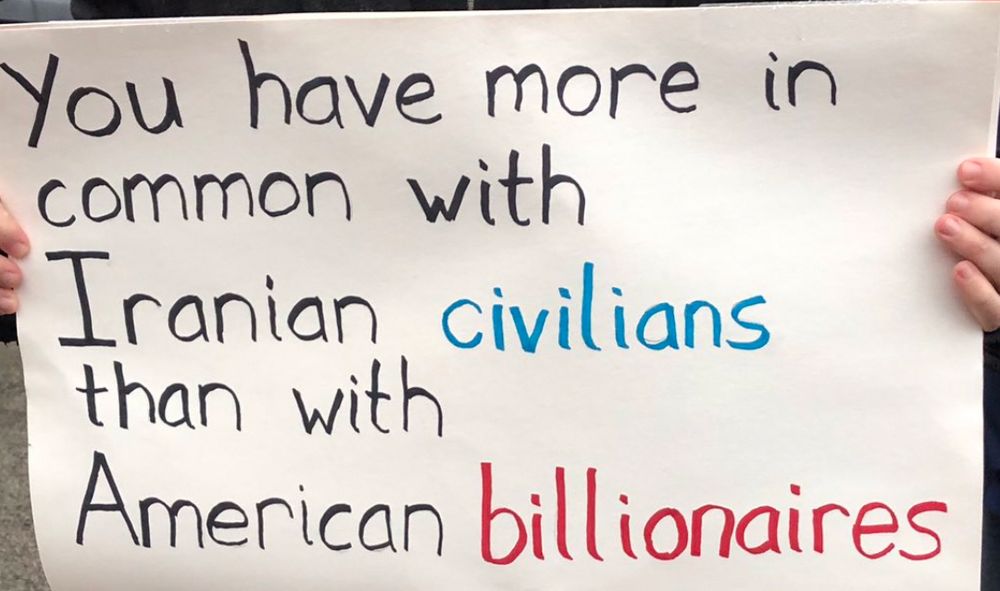 You have more in
common with
Iranian civilians
than with
American billionaires